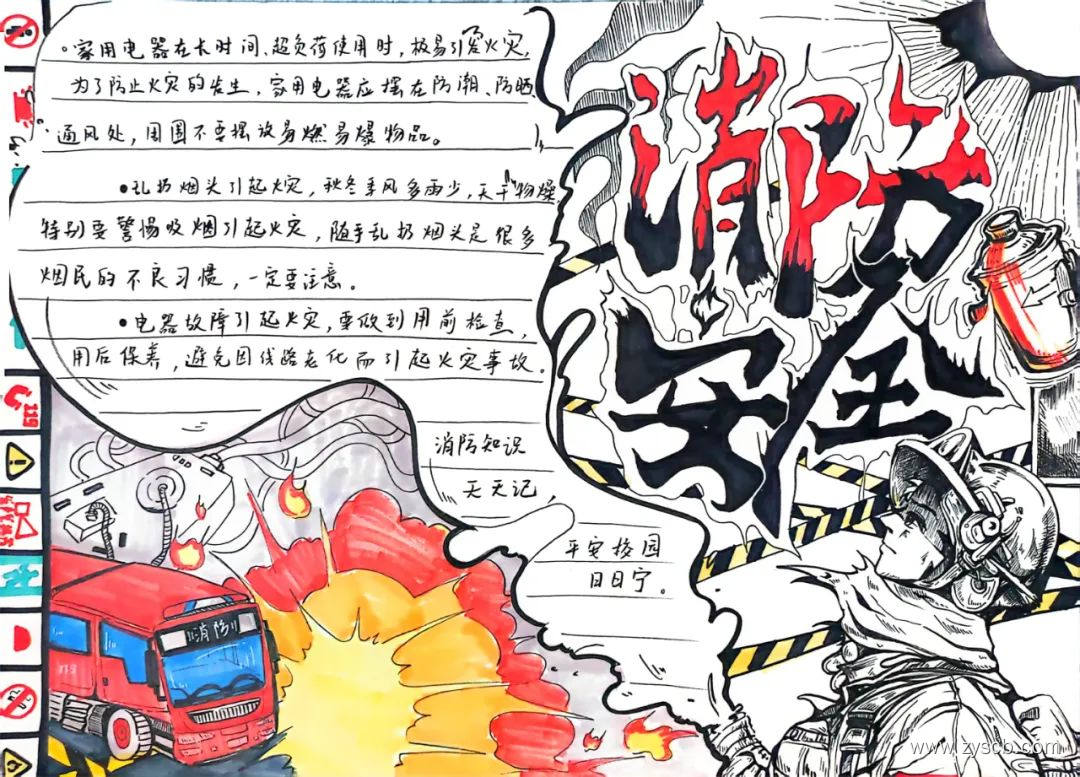 消防
安全
·家用电器在长时间、超负荷使用时，极易引发火灾，
为了防止火灾的发生，家用电器应摆在防潮、防晒、
通风处，周围不要摆放易燃易爆物品。
·乱扔烟头引起火灾，秋冬季风多雨少，天干物燥
特别要警惕吸烟引起火灾，随手乱扔烟头是很多
烟民的不良习惯，一定要注意。
·电器故障引起火灾，要做到用前检查，
用后保养，避免因线路老化而引起火灾事故。
消防知识
天天记，
平安校园
日日宁。
消防
119
www.zyscb.com